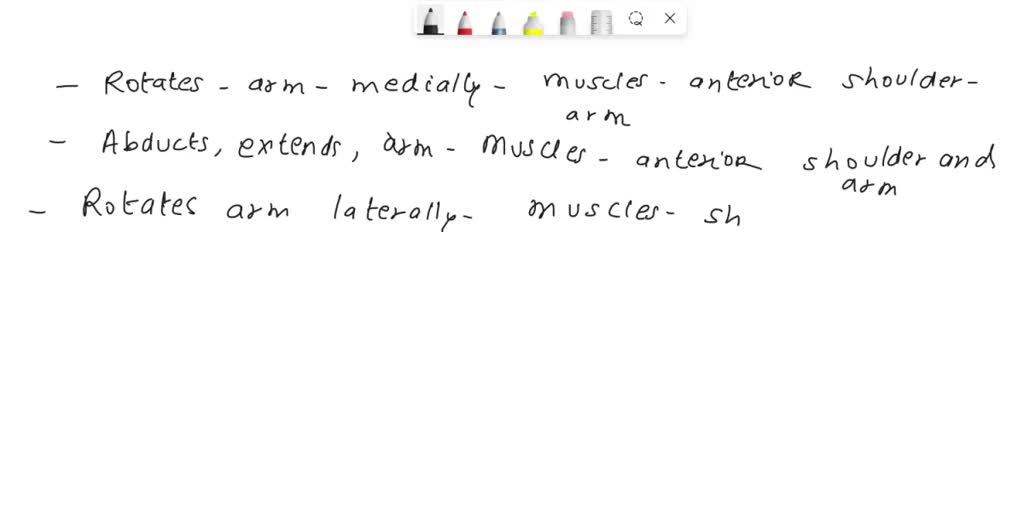 - Rotates - arm - medially - muscles - anterior shoulder -
arm
- Abducts, extends, arm - muscles - anterior shoulder and
arm
- Rotates arm laterally - muscles - sh